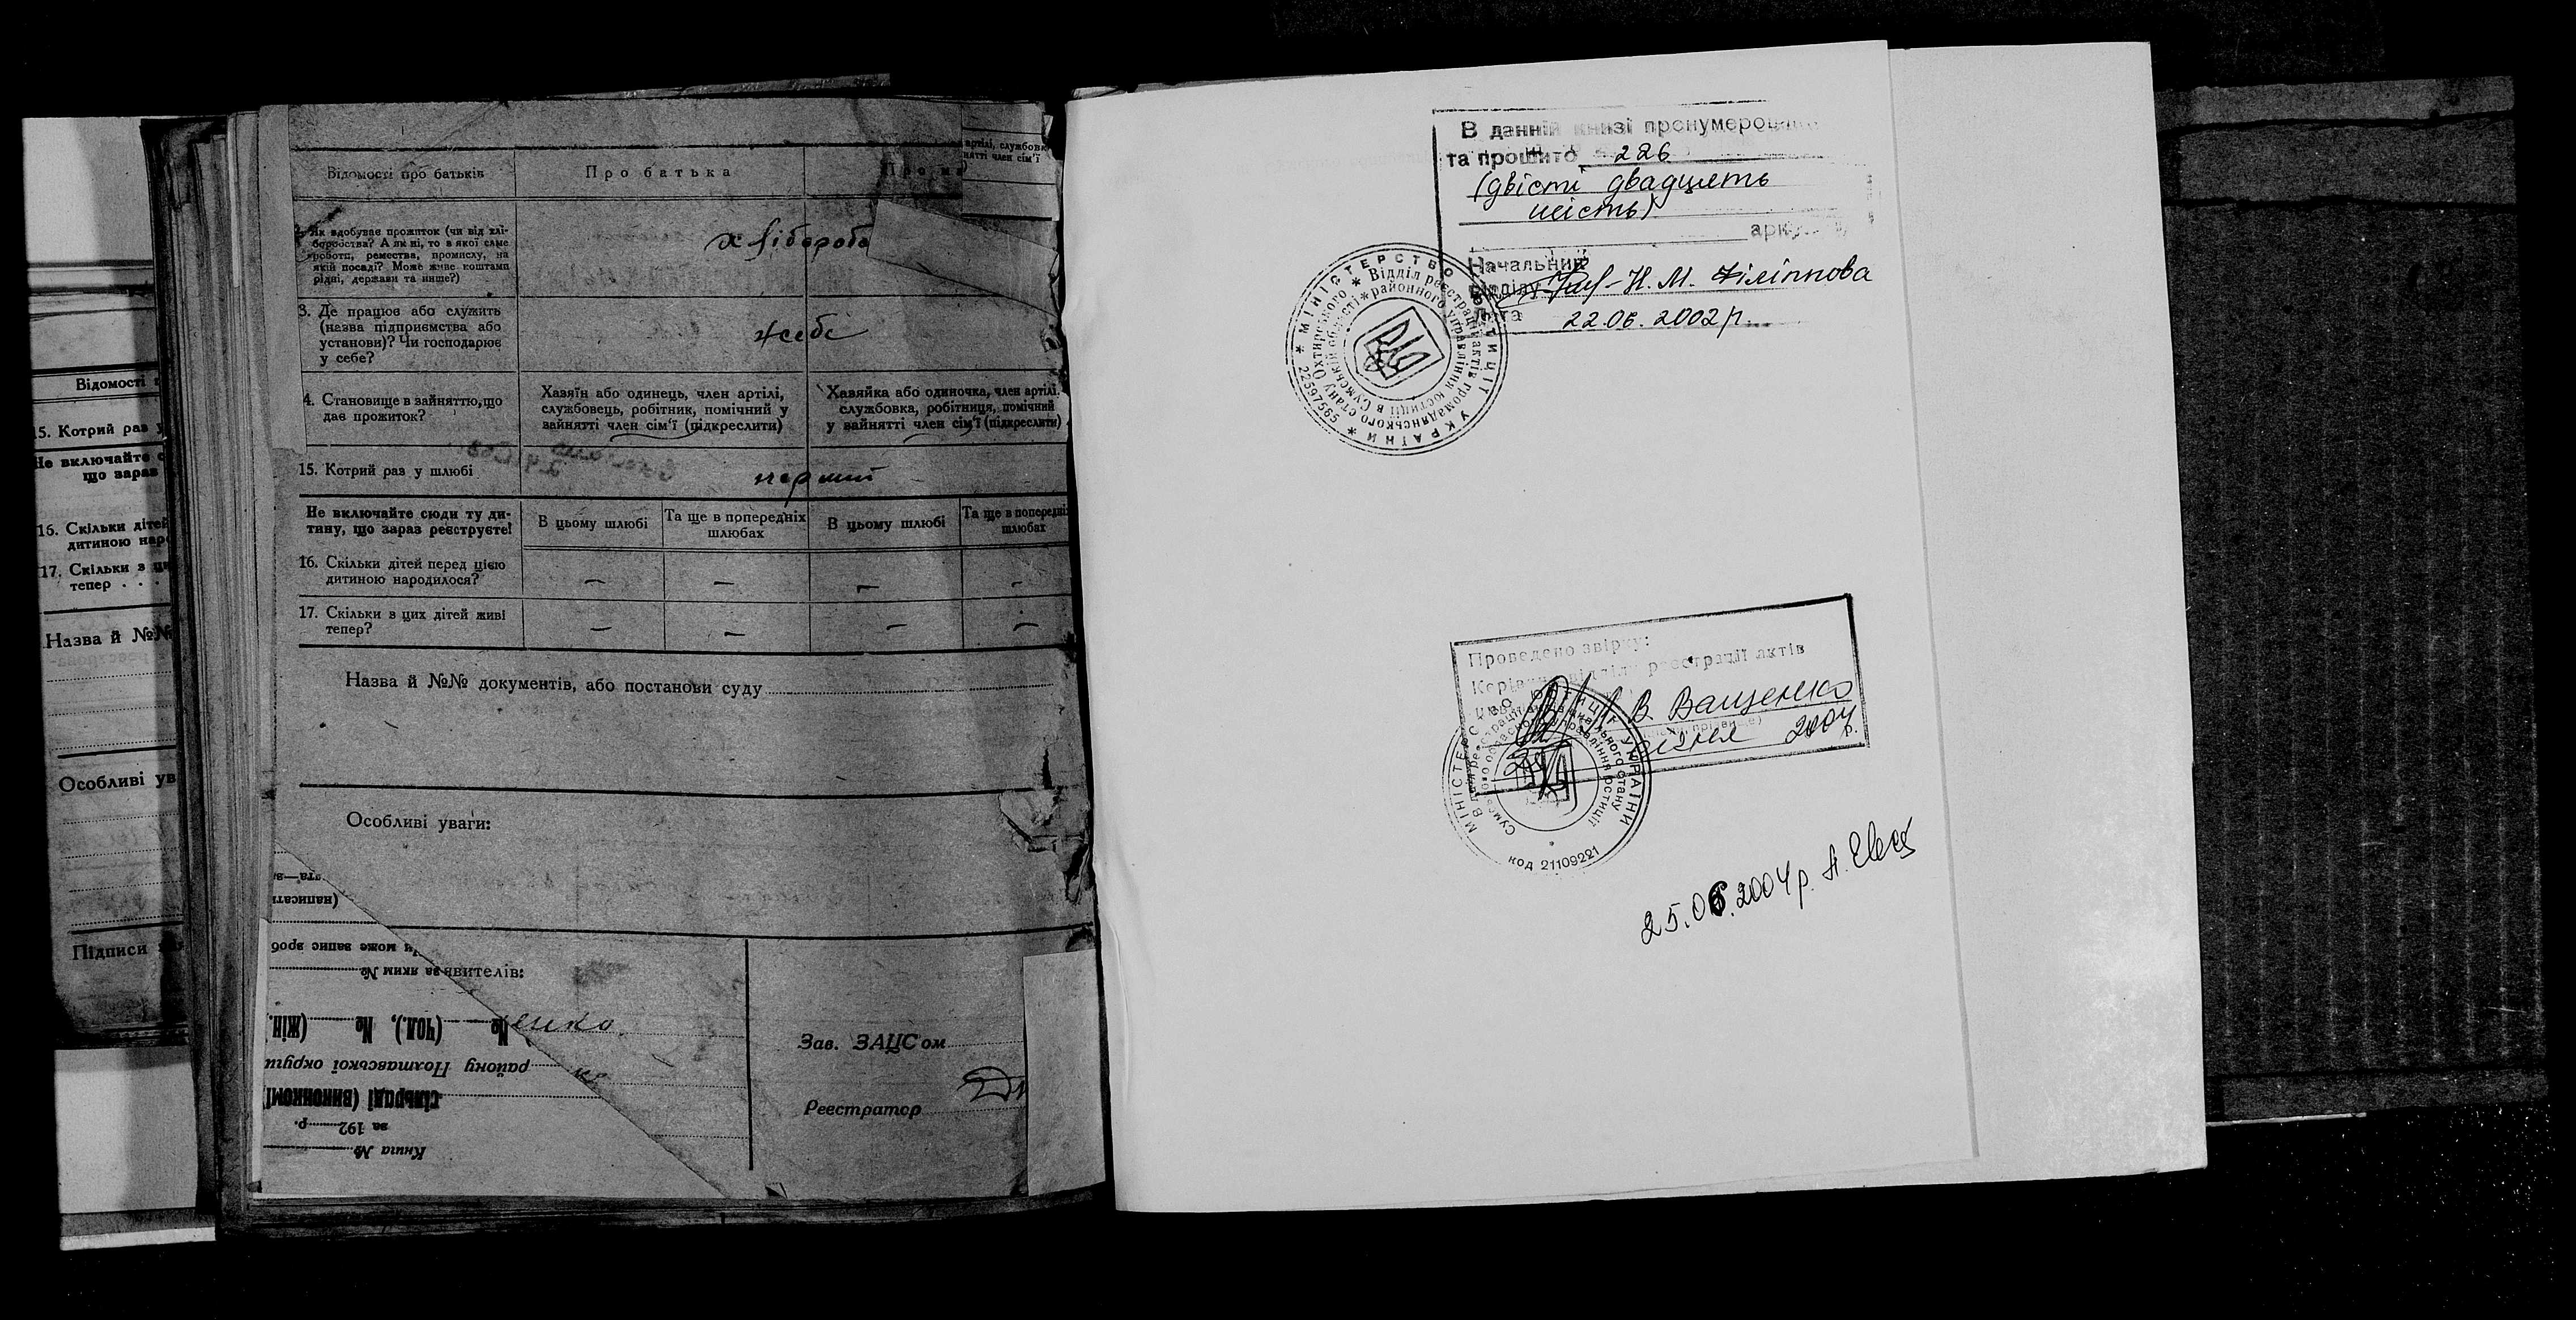 Відомості п
15. Котрий раз у
Не включайте с
що зараз
16. Скільки дітей
дитиною наро
17. Скільки з ци
тепер . . .
Назва й №№
Особливі ув
Підписи
Відомості про батьків
Про батька
Про ма
артілі, службовк
нятті член сім'ї
Як здобуває прожиток (чи від хлі-
боробства? А як ні, то з якої саме
роботи, ремества, промислу, на
якій посаді? Може живе коштами
рідні, держави та инше?)
хлібороба
3. Де працює або служить
(назва підприємства або
установи)? Чи господарює
у себе?
4. Становище в зайняттю, що
дає прожиток?
Хазяїн або одинець, член артілі,
службовець, робітник, помічний у
зайнятті член сім'ї (підкреслити)
Хазяйка або одиночка, член артілі,
службовка, робітниця, помічний
у зайнятті член сім'ї (підкреслити)
15. Котрий раз у шлюбі
перший
Не включайте сюди ту ди-
тину, що зараз реєструєте!
В цьому шлюбі
Та ще в попередніх
шлюбах
В цьому шлюбі
Та ще в попередніх
шлюбах
16. Скільки дітей перед цією
дитиною народилося?
— — — —
17. Скільки з цих дітей живі
тепер?
— — — —
Назва й №№ документів, або постанови суду
Особливі уваги:
(написати
и може запис зроб
за яким №
явителів:
№ (чол.), № (жін.)
енко
району Полтавської округи
сільраді (виконкомі
за 192 р.
Книга №
Зав. ЗАЦС'ом
Реєстратор
В данній книзі пронумеровано
та прошито 226
(двісти двадцять
шість)
арк
Начальник
відділу Н. М. Філіппова
Дата 22.06.2002 р.
* МІНІСТЕРСТВО ЮСТИЦІЇ УКРАЇНИ * 22597565
* Відділ реєстрації актів громадянського стану Охтирського
* районного управління юстиції в Сумській області
Проведено звірку:
Керівник відділу реєстрації актів
В. Ващенко
2004 р.
МІНІСТЕРСТВО ЮСТИЦІЇ УКРАЇНИ
код 21109221
25.06.2004 р.